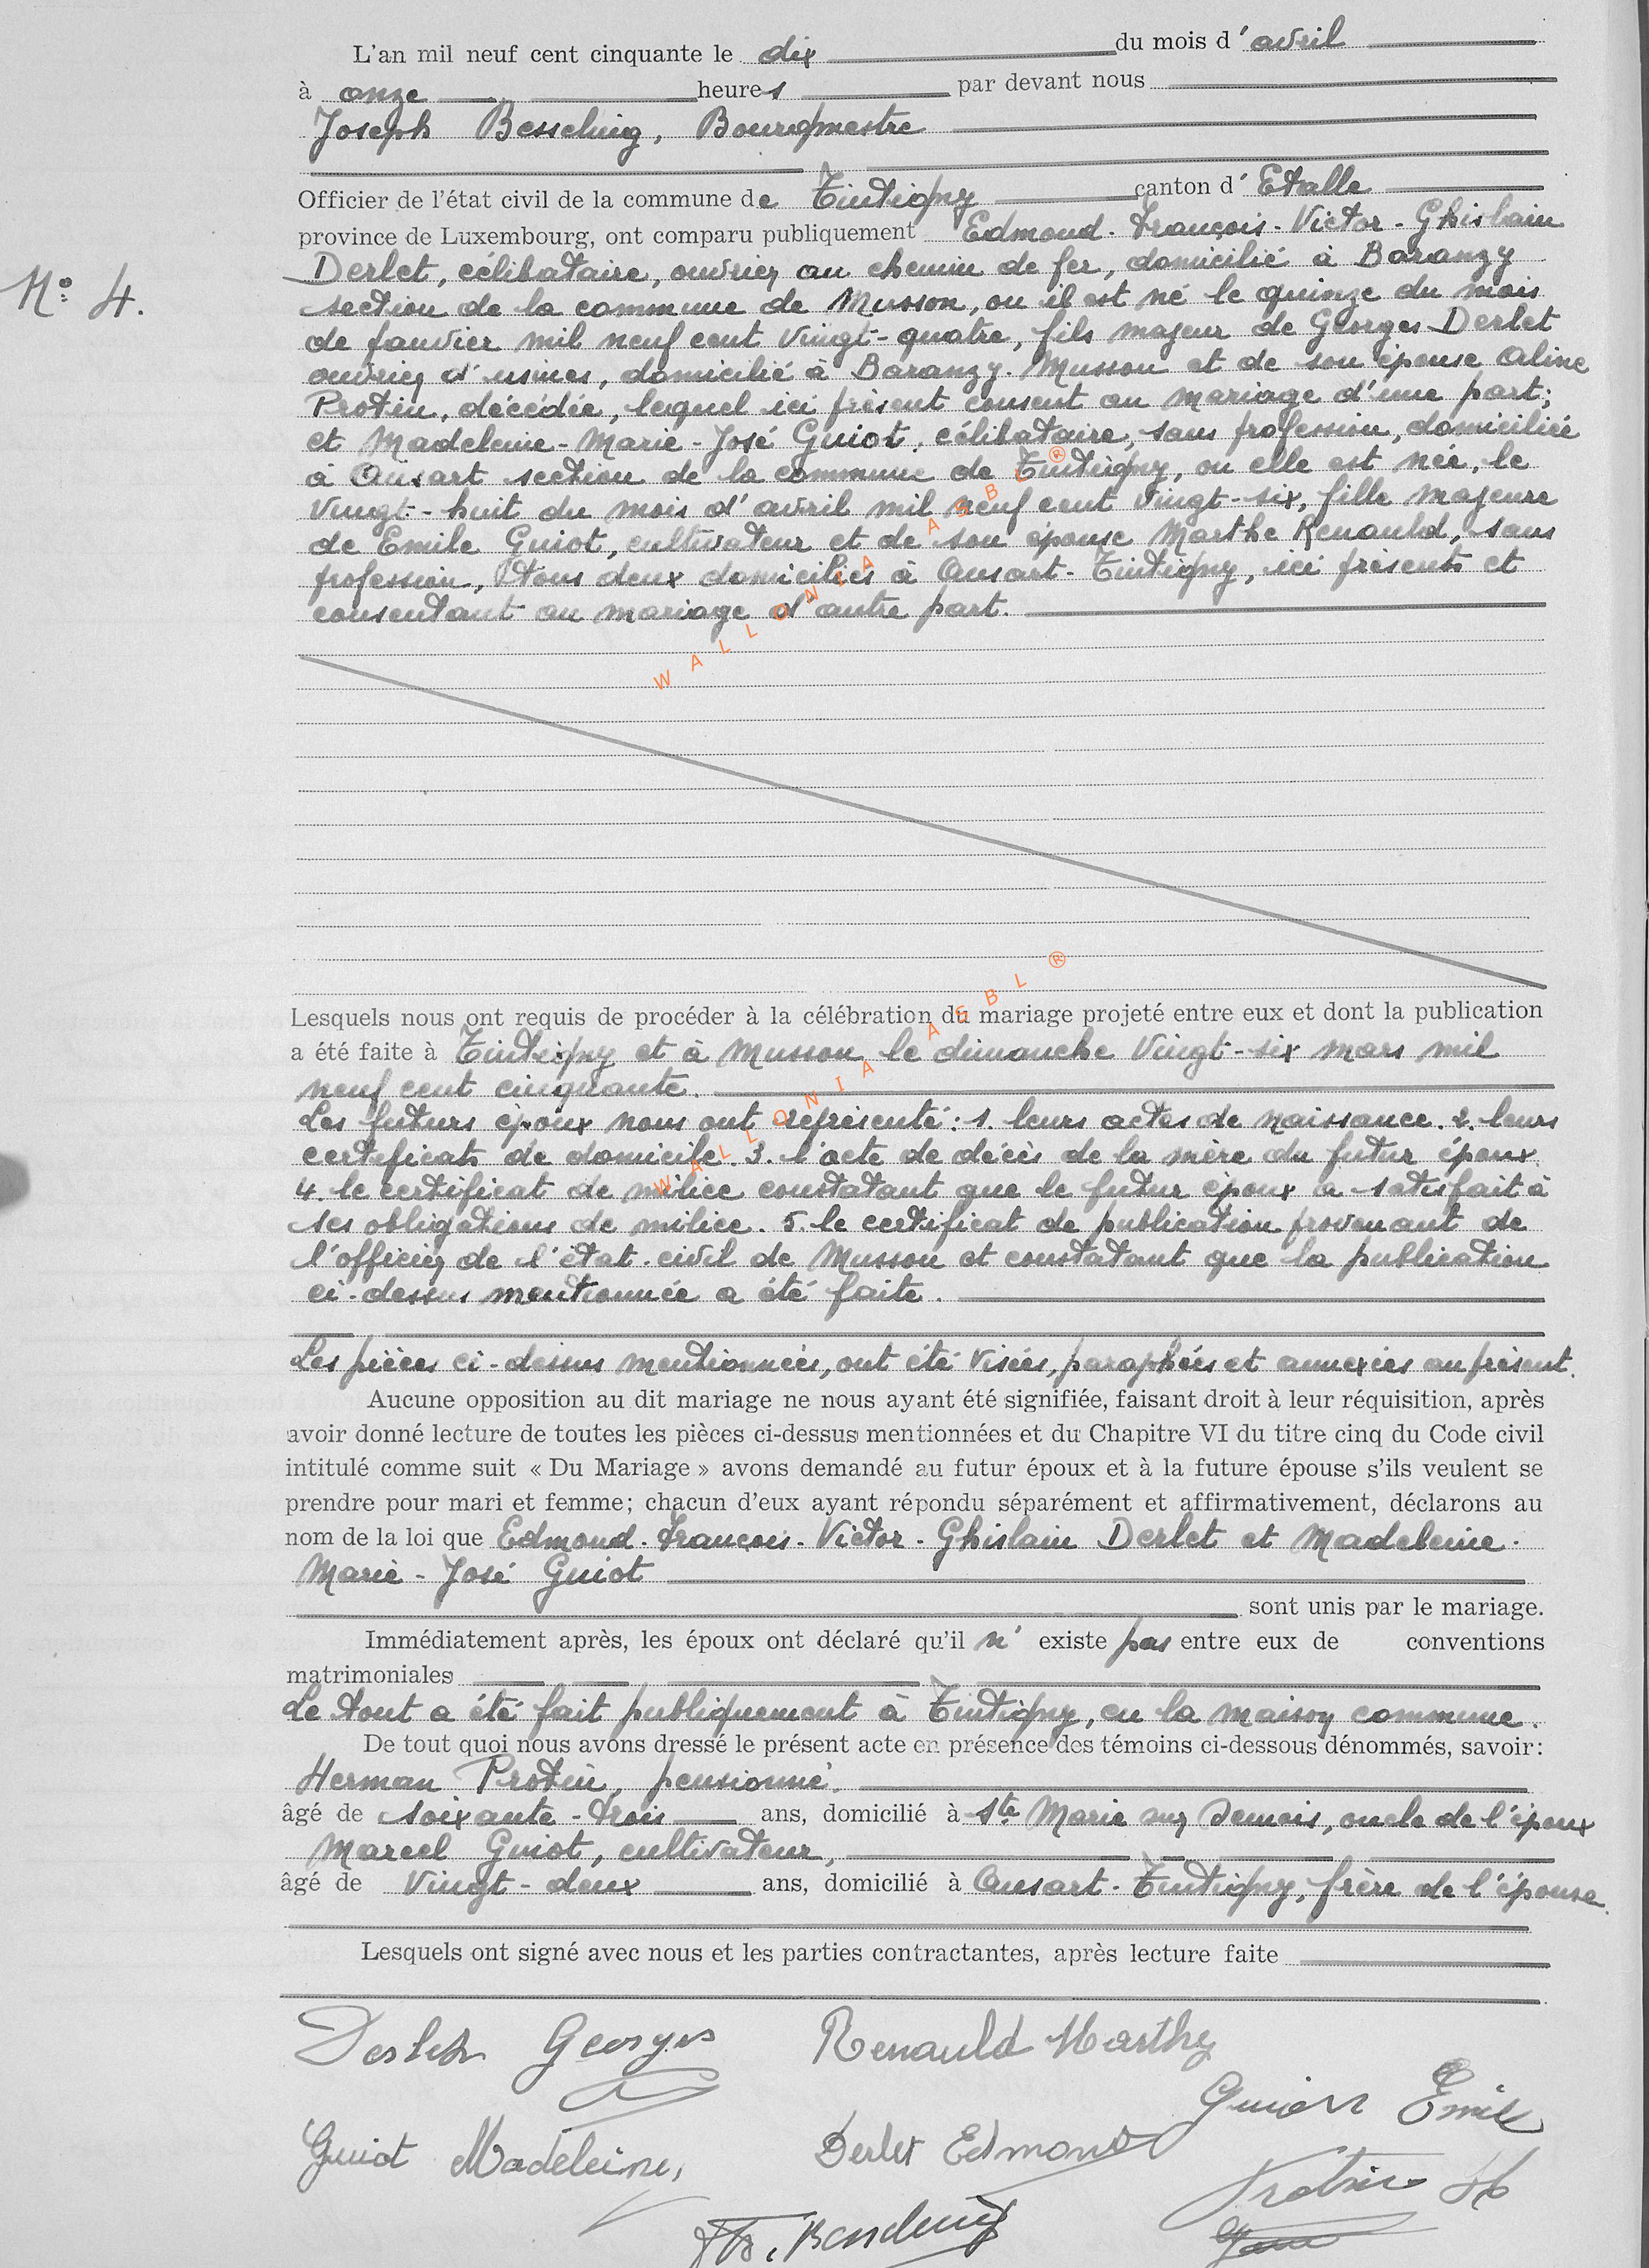 L'an mil neuf cent cinquante le dix du mois d'avril
à onze heures par devant nous
Joseph Besseling, Bourgmestre
Officier de l'état civil de la commune de Tintigny canton d'Etalle
province de Luxembourg, ont comparu publiquement Edmond-François-Victor-Ghislain
N° 4.
Derlet, célibataire, ouvrier au chemin de fer, domicilié à Baranzy
section de la commune de Musson, ou il est né le quinze du mois
de janvier mil neuf cent vingt-quatre, fils majeur de Georges Derlet
ouvrier d'usines, domicilié à Baranzy-Musson et de son épouse Aline
Protin, décédée, lequel ici présent consent au mariage d'une part;
et Madeleine-Marie-José Guiot, célibataire, sans profession, domiciliée
à Ansart section de la commune de Tintigny, ou elle est née, le
vingt-huit du mois d'avril mil neuf cent vingt-six, fille majeure
de Emile Guiot, cultivateur et de son épouse Marthe Renauld, sans
profession, tous deux domiciliés à Ansart-Tintigny, ici présents et
consentant au mariage d'autre part.
WALLONIA ASBL ®
Lesquels nous ont requis de procéder à la célébration du mariage projeté entre eux et dont la publication
a été faite à Tintigny et à Musson le dimanche vingt-six mars mil
neuf cent cinquante.
Les futurs époux nous ont représenté: 1. leurs actes de naissance. 2. leurs
certificats de domicile. 3. l'acte de décès de la mère du futur époux.
4. le certificat de milice constatant que le futur époux a satisfait à
ses obligations de milice. 5. le certificat de publication provenant de
l'officier de l'état-civil de Musson et constatant que la publication
ci-dessus mentionnée a été faite.
WALLONIA ASBL ®
Les pièces ci-dessus mentionnées, ont été visées, paraphées et annexées au présent.
Aucune opposition au dit mariage ne nous ayant été signifiée, faisant droit à leur réquisition, après
avoir donné lecture de toutes les pièces ci-dessus mentionnées et du Chapitre VI du titre cinq du Code civil
intitulé comme suit « Du Mariage » avons demandé au futur époux et à la future épouse s'ils veulent se
prendre pour mari et femme; chacun d'eux ayant répondu séparément et affirmativement, déclarons au
nom de la loi que Edmond-François-Victor-Ghislain Derlet et Madeleine-
Marie-José Guiot
sont unis par le mariage.
Immédiatement après, les époux ont déclaré qu'il n'existe pas entre eux de conventions
matrimoniales
Le tout a été fait publiquement à Tintigny, en la maison commune.
De tout quoi nous avons dressé le présent acte en présence des témoins ci-dessous dénommés, savoir:
Herman Protin, pensionné
âgé de soixante-trois ans, domicilié à Ste Marie sur Semois, oncle de l'époux
Marcel Guiot, cultivateur,
âgé de vingt-deux ans, domicilié à Ansart-Tintigny, frère de l'épouse.
Lesquels ont signé avec nous et les parties contractantes, après lecture faite
Derlet Georges Renauld Marthe
Guiot Emile
Guiot Madeleine, Derlet Edmond
Protin H